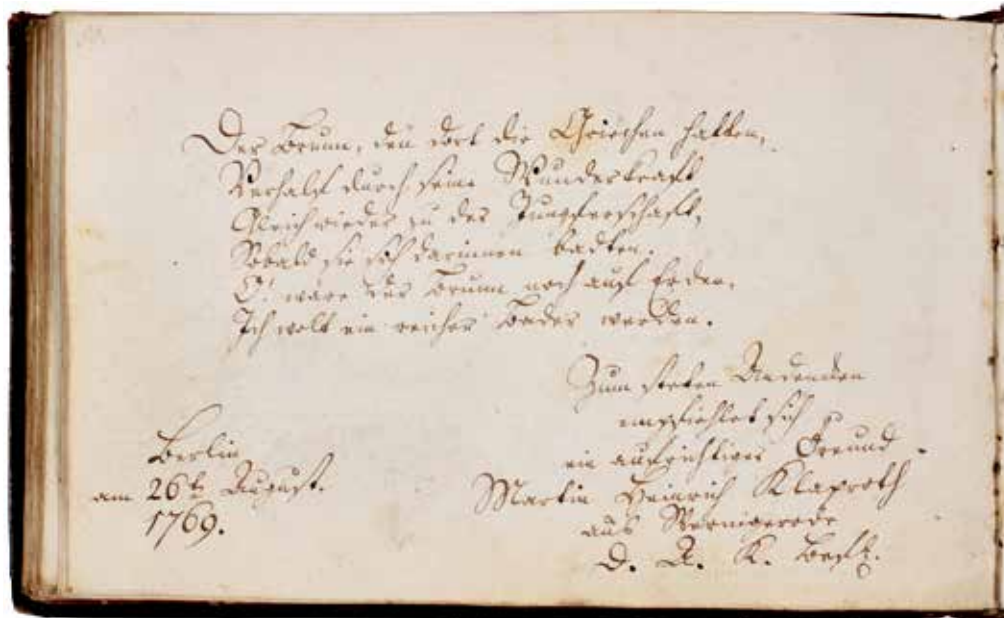 Der Brunn, den dort die Griechen hatten,
Verhalf durch seine Wunderkraft
Gleich wieder zu der Jungferschaft,
Sobald sie sich darinnen badten.
O! wäre der Brunn noch auf Erden,
Ich wolt ein reicher Bader werden.
Zum steten Andencken
empfiehlet sich
ein aufrichtiger Freund
Martin Heinrich Klaproth
aus Wernigerode
D. A. K. Befl.
Berlin
am 26t August.
1769.